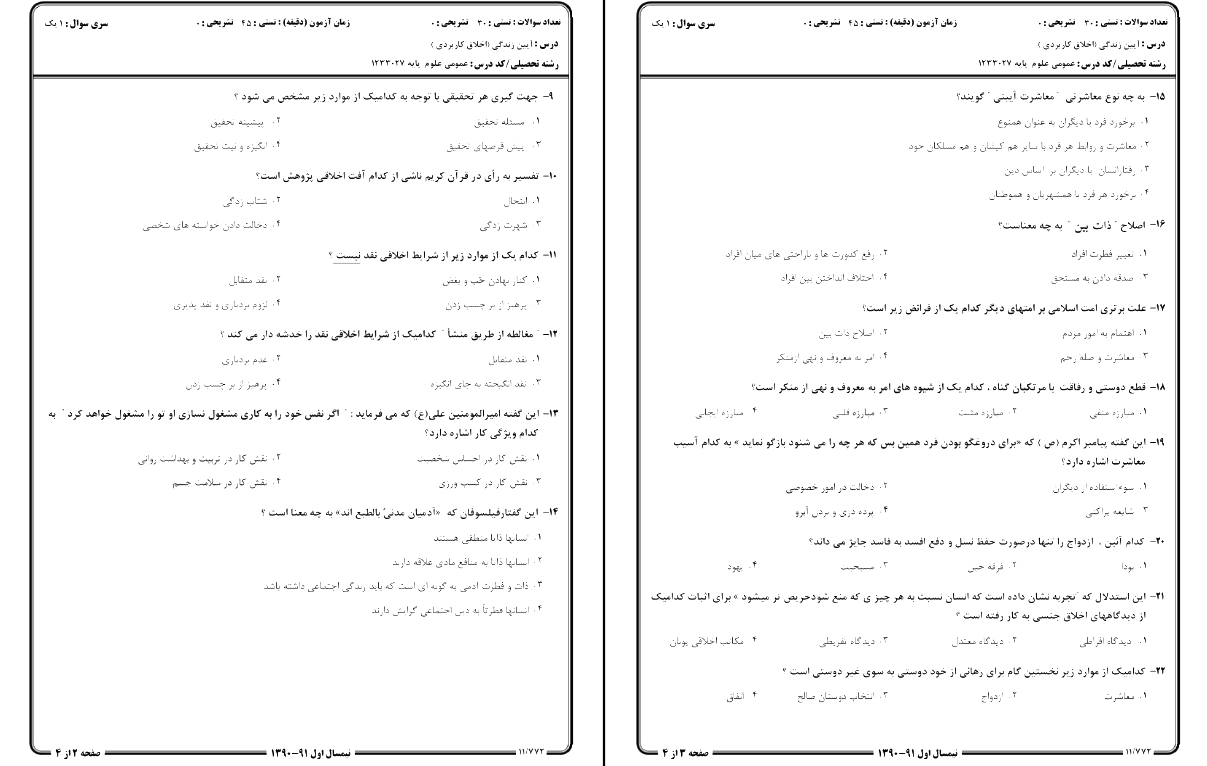 تعداد سوالات : تستی : ۳۰ تشریحی : ۰ زمان آزمون (دقیقه) : تستی : ۴۵ تشریحی : ۰ سری سوال : ۱ یک
درس : آیین زندگی (اخلاق کاربردی )
رشته تحصیلی/کد درس : عمومی علوم پایه ۱۲۳۳۰۲۷
۹- جهت گیری هر تحقیقی با توجه به کدامیک از موارد زیر مشخص می شود ؟
۱. مسئله تحقیق ۲. پیشینه تحقیق
۳. پیش فرضهای تحقیق ۴. انگیزه و نیت تحقیق
۱۰- تفسیر به رأی در قرآن کریم ناشی از کدام آفت اخلاقی پژوهش است؟
۱. انتحال ۲. شتاب زدگی
۳. شهرت زدگی ۴. دخالت دادن خواسته های شخصی
۱۱- کدام یک از موارد زیر از شرایط اخلاقی نقد نیست ؟
۱. کنار نهادن حُب و بغض ۲. نقد متقابل
۳. پرهیز از بر چسب زدن ۴. لزوم بردباری و نقد پذیری
۱۲- " مغالطه از طریق منشأ " کدامیک از شرایط اخلاقی نقد را خدشه دار می کند ؟
۱. نقد متقابل ۲. عدم بردباری
۳. نقد انگیخته به جای انگیزه ۴. پرهیز از بر چسب زدن
۱۳- این گفته امیرالمومنین علی(ع) که می فرماید : " اگر نفس خود را به کاری مشغول نسازی او تو را مشغول خواهد کرد " به
کدام ویژگی کار اشاره دارد؟
۱. نقش کار در احساس شخصیت ۲. نقش کار در تربیت و بهداشت روانی
۳. نقش کار در کسب ورزی ۴. نقش کار در سلامت جسم
۱۴- این گفتارفیلسوفان که «آدمیان مدنیّ بالطبع اند» به چه معنا است ؟
۱. انسانها ذاتا منطقی هستند
۲. انسانها ذاتا به منافع مادی علاقه دارند
۳. ذات و فطرت آدمی به گونه ای است که باید زندگی اجتماعی داشته باشد
۴. انسانها فطرتاً به دین اجتماعی گرایش دارند
۱۱/۷۷۲ نیمسال اول ۹۱-۱۳۹۰ صفحه ۲ از ۴
تعداد سوالات : تستی : ۳۰ تشریحی : ۰ زمان آزمون (دقیقه) : تستی : ۴۵ تشریحی : ۰ سری سوال : ۱ یک
درس : آیین زندگی (اخلاق کاربردی )
رشته تحصیلی/کد درس : عمومی علوم پایه ۱۲۳۳۰۲۷
۱۵- به چه نوع معاشرتی "معاشرت آیینی" گویند؟
۱. برخورد فرد با دیگران به عنوان همنوع
۲. معاشرت و روابط هر فرد با سایر هم کیشان و هم مسلکان خود
۳. رفتارانسان با دیگران بر اساس دین
۴. برخورد هر فرد با همشهریان و هموطنان
۱۶- اصلاح "ذات بین" به چه معناست؟
۱. تغییر فطرت افراد ۲. رفع کدورت ها و ناراحتی های میان افراد
۳. صدقه دادن به مستحق ۴. اختلاف انداختن بین افراد
۱۷- علت برتری امت اسلامی بر امتهای دیگر کدام یک از فرائض زیر است؟
۱. اهتمام به امور مردم ۲. اصلاح ذات بین
۳. معاشرت و صله رحم ۴. امر به معروف و نهی ازمنکر
۱۸- قطع دوستی و رفاقت با مرتکبان گناه ، کدام یک از شیوه های امر به معروف و نهی از منکر است؟
۱. مبارزه منفی ۲. مبارزه مثبت ۳. مبارزه قلبی ۴. مبارزه ایجابی
۱۹- این گفته پیامبر اکرم (ص ) که «برای دروغگو بودن فرد همین بس که هر چه را می شنود بازگو نماید » به کدام آسیب
معاشرت اشاره دارد؟
۱. سوء استفاده از دیگران ۲. دخالت در امور خصوصی
۳. شایعه پراکنی ۴. پرده دری و بردن آبرو
۲۰- کدام آئین ، ازدواج را تنها درصورت حفظ نسل و دفع افسد به فاسد جایز می داند؟
۱. بودا ۲. فرقه جین ۳. مسیحیت ۴. یهود
۲۱- این استدلال که "تجربه نشان داده است که انسان نسبت به هر چیز ی که منع شودحریص تر میشود » برای اثبات کدامیک
از دیدگاههای اخلاق جنسی به کار رفته است ؟
۱. دیدگاه افراطی ۲. دیدگاه معتدل ۳. دیدگاه تفریطی ۴. مکاتب اخلاقی یونان
۲۲- کدامیک از موارد زیر نخستین گام برای رهائی از خود دوستی به سوی غیر دوستی است ؟
۱. معاشرت ۲. ازدواج ۳. انتخاب دوستان صالح ۴. انفاق
۱۱/۷۷۲ نیمسال اول ۹۱-۱۳۹۰ صفحه ۳ از ۴